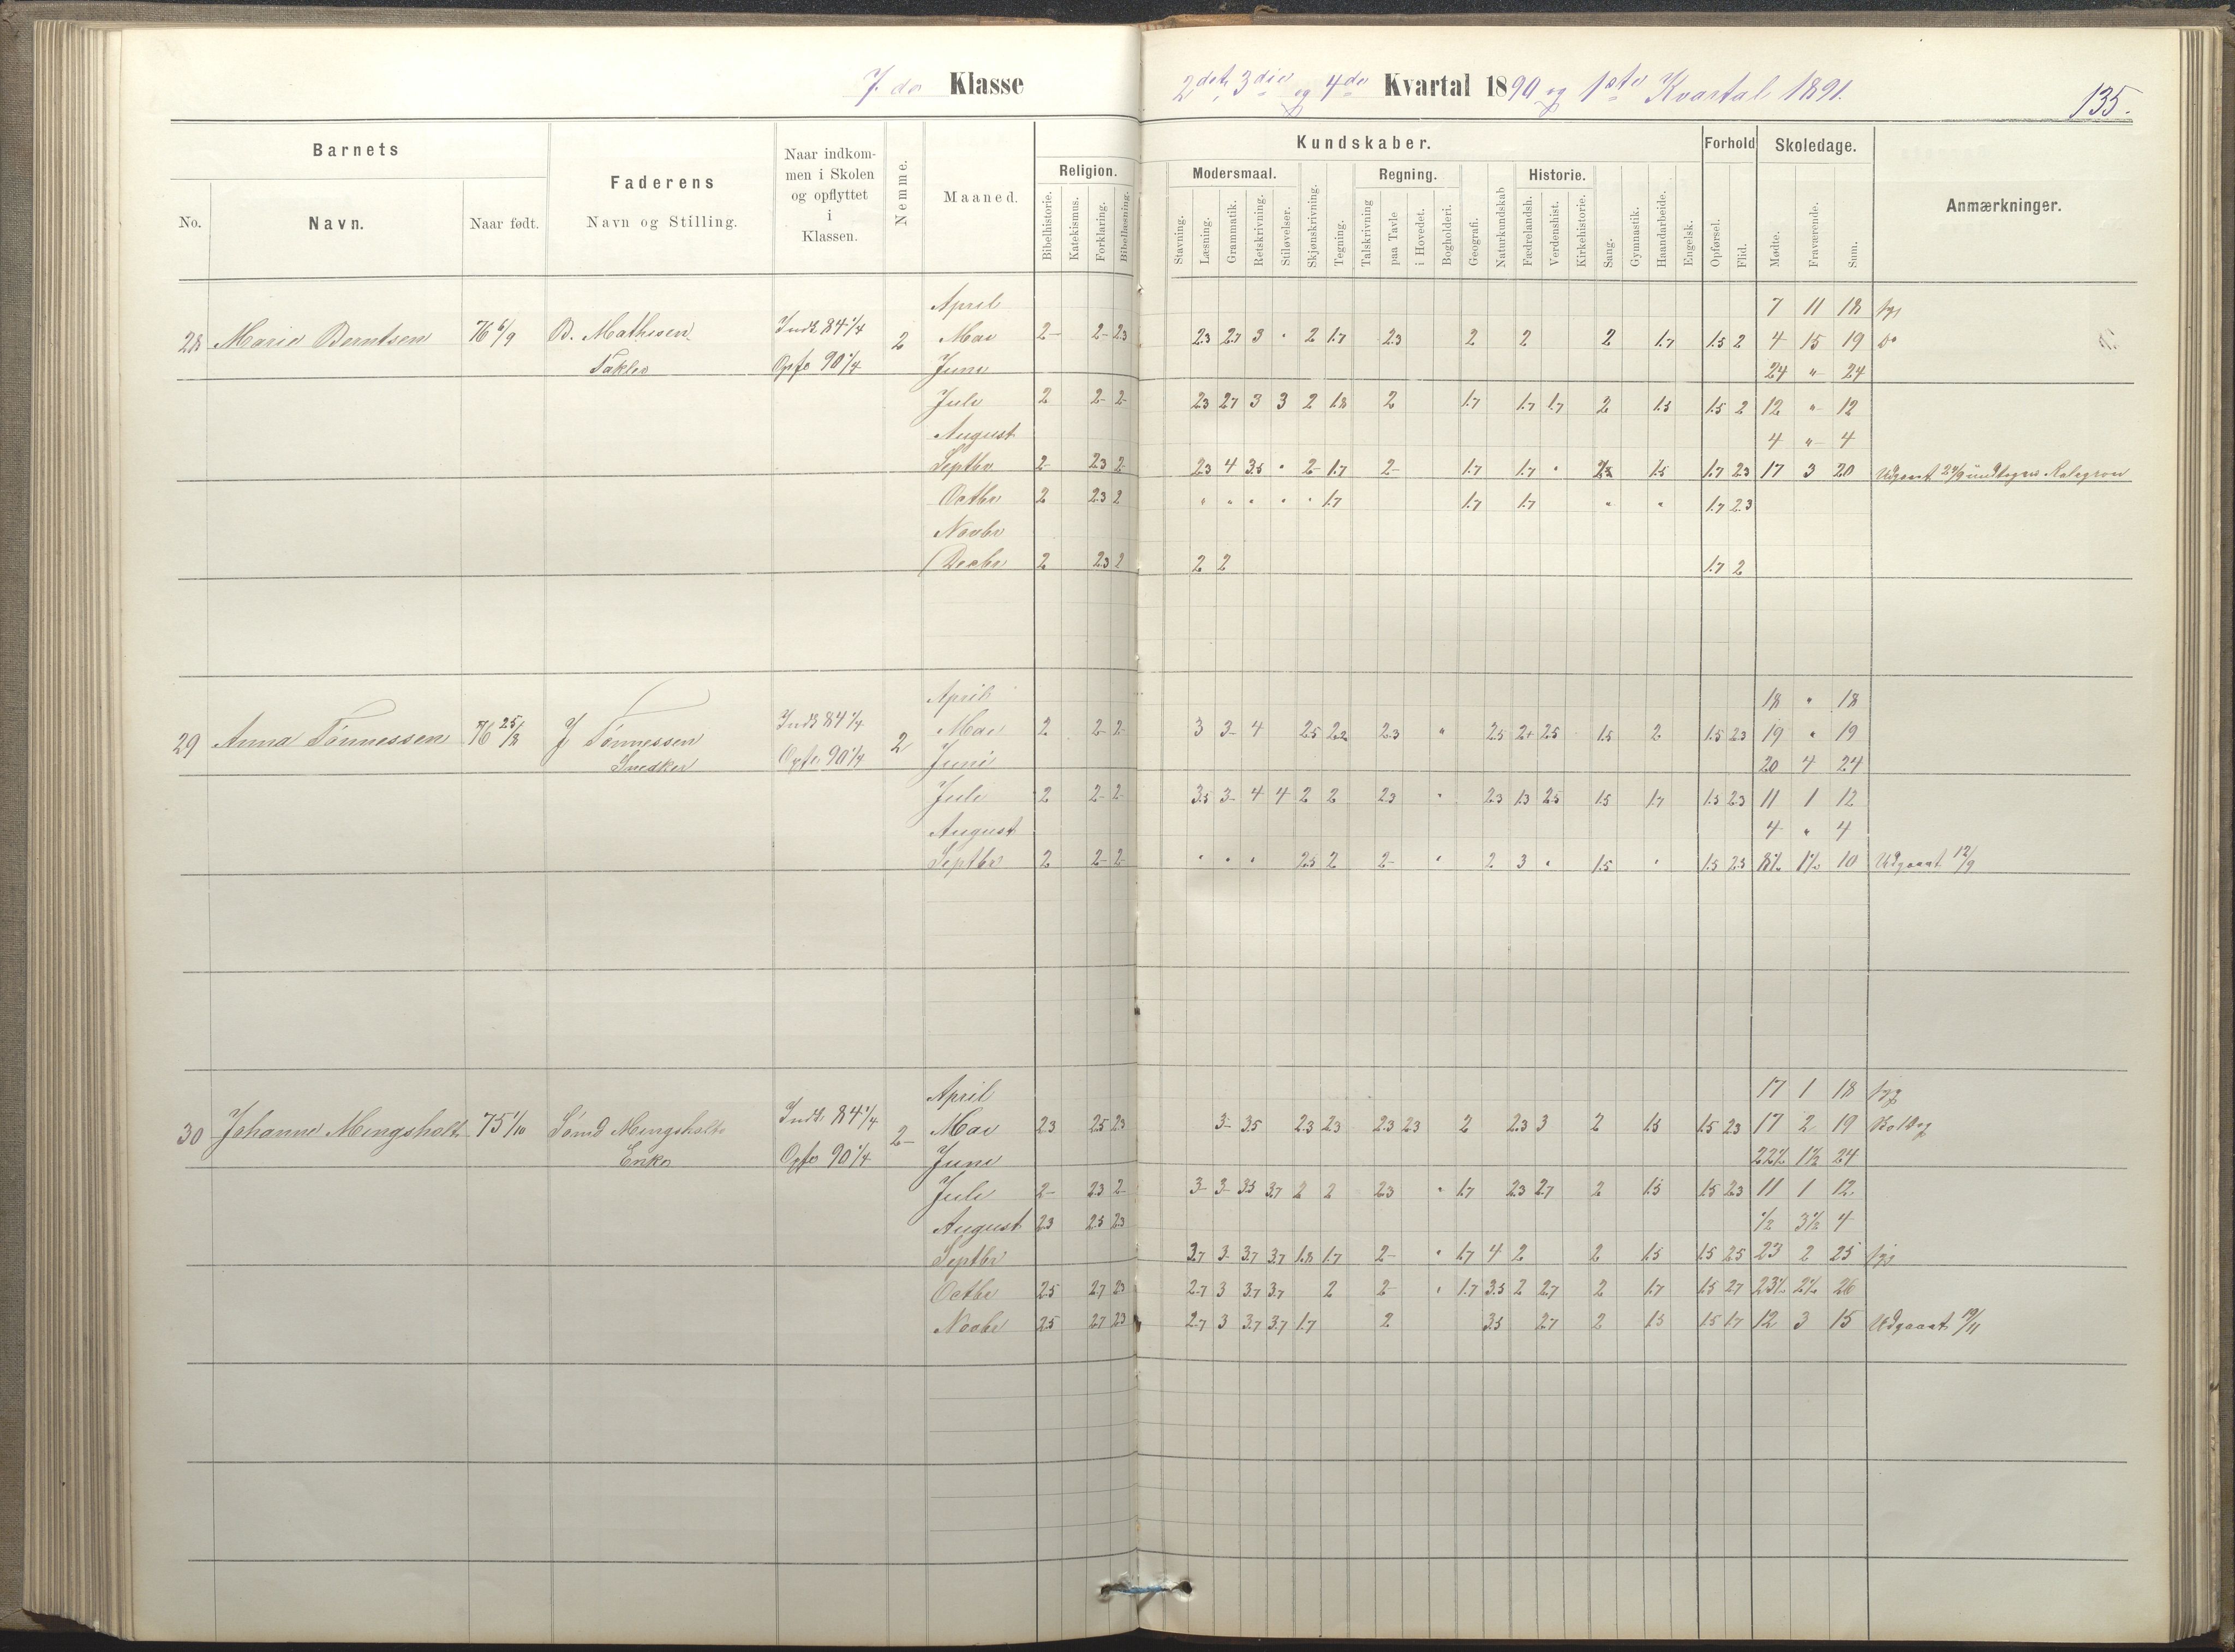 7de Klasse 2det, 3die og 4de Kvartal 1890 og 1ste Kvartal 1891. 135.
Barnets Faderens Naar indkommen i Skolen og opflyttet i Klassen. Nemme. Maaned. Kundskaber. Forhold Skoledage. Anmærkninger.
No. Navn. Naar født. Navn og Stilling. Religion. Modersmaal. Regning. Historie.
Bibelhistorie. Katekismus. Forklaring. Bibellæsning. Stavning. Læsning. Grammatik. Retskrivning. Stiløvelser. Skjønskrivning. Tegning. Talskrivning paa Tavle i Hovedet. Bogholderi. Geografi. Naturkundskab Fædrelandsh. Verdenshist. Kirkehistorie. Sang. Gymnastik. Haandarbeide. Engelsk. Opførsel. Flid. Mødte. Fraværende. Sum.
April 7 11 18 syg
28 Marie Berntsen 76 6/9 B. Mathisen Indk 84 1/4 2 Mai 2- 2- 2.3 2.3 2.7 3 " 2 1.7 2.3 2 2 2 1.7 1.5 2 4 15 19 Do
Takler Opfl 90 1/4 Juni 24 " 24
Juli 2 2- 2- 2.3 2.7 3 3 2 1.8 2 1.7 1.7 1.7 2 1.5 1.5 2 12 " 12
August 4 " 4
Septbr 2- 2.3 2- 2.3 4 3.5 " 2- 1.7 2- 1.7 1.7 " 1.5 1.7 2.3 17 3 20 Udgaat
Octbr 2 2.3 2 " " " " " 1.7 1.7 1.7 " " 1.7 2.3
Novbr
Decbr 2 2.3 2 2 2 1.7 2
April 18 " 18
29 Anna Tønnessen 76 25/8 J Tønnessen Indk 84 1/4 2 Mai 2 2- 2- 3 3- 4 2.5 2.2 2.3 " 2.5 2+ 2.5 1.5 2 1.5 2.3 19 " 19
Snedker Opfl 90 1/4 Juni 20 4 24
Juli 2 2- 2- 3.5 3- 4 4 2 2 2.3 " 2.3 1.3 2.5 1.5 1.7 1.5 2.3 11 1 12
August 4 " 4
Septbr 2 2- 2- " " " 2.5 2 2- " 2 3 " 1.5 " 1.5 2.5 8½ 1½ 10 Udgaat 12/9
April 17 1 18 syg
30 Johanne Mingsholt 75 1/10 Mingsholt Indk 84 1/4 2- Mai 2.3 2.5 2.3 3- 3.5 2.3 2.3 2.3 2.3 2 2.3 3 2 1.5 1.5 2.3 17 2 19
Enke Opfl 90 1/4 Juni 22½ 1½ 24
Juli 2- 2.3 2- 3- 3- 3.5 3.7 2 2 2.3 " 1.7 2.3 2.7 2 1.5 1.5 2.3 11 1 12
August 2.3 2.5 2.3 ½ 3½ 4
Septbr 3.7 3- 3.7 3.7 1.8 1.7 2- " 1.7 4 2 2 1.5 1.5 2.5 23 2 25 syg
Octbr 2.5 2.7 2.3 2.7 3 3.7 3.7 2 2- " 1.7 3.5 2 2.7 2 1.7 1.5 2.7 23½ 2½ 26
Novbr 2.5 2.7 2.3 2.7 3 3.7 3.7 1.7 2 3.5 2.7 2 1.5 1.5 1.7 12 3 15 Udgaat 19/11